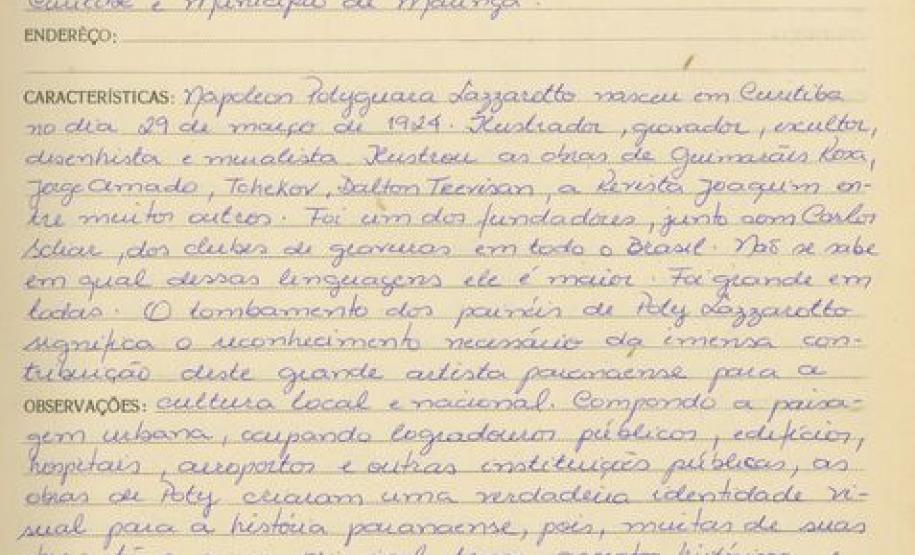 Curitiba e Município de Maringá.
ENDERÊÇO:
CARACTERÍSTICAS: Napoleon Potyguara Lazzarotto nasceu em Curitiba
no dia 29 de março de 1924. Ilustrador, gravador, escultor,
desenhista e muralista. Ilustrou as obras de Guimarães Rosa,
Jorge Amado, Tchekov, Dalton Trevisan, a Revista Joaquim en-
tre muitos outros. Foi um dos fundadores, junto com Carlos
Scliar, dos clubes de gravuras em todo o Brasil. Não se sabe
em qual dessas linguagens ele é maior. Foi grande em
todas. O tombamento dos painéis de Poty Lazzarotto
significa o reconhecimento necessário da imensa con-
tribuição deste grande artista paranaense para a
OBSERVAÇÕES: cultura local e nacional. Compondo a paisa-
gem urbana, ocupando logradouros públicos, edifícios,
hospitais, aeroportos e outras instituições públicas, as
obras de Poty criaram uma verdadeira identidade vi-
sual para a história paranaense, pois, muitas de suas